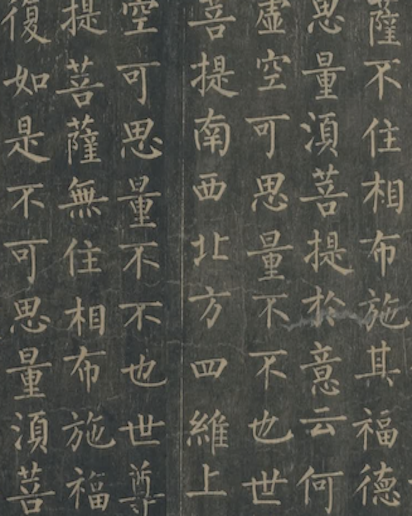 薩不住相布施其福德
思量須菩提於意云何
虛空可思量不不也世
菩提南西北方四維上
空可思量不不也世尊
提菩薩無住相布施福
復如是不可思量須菩